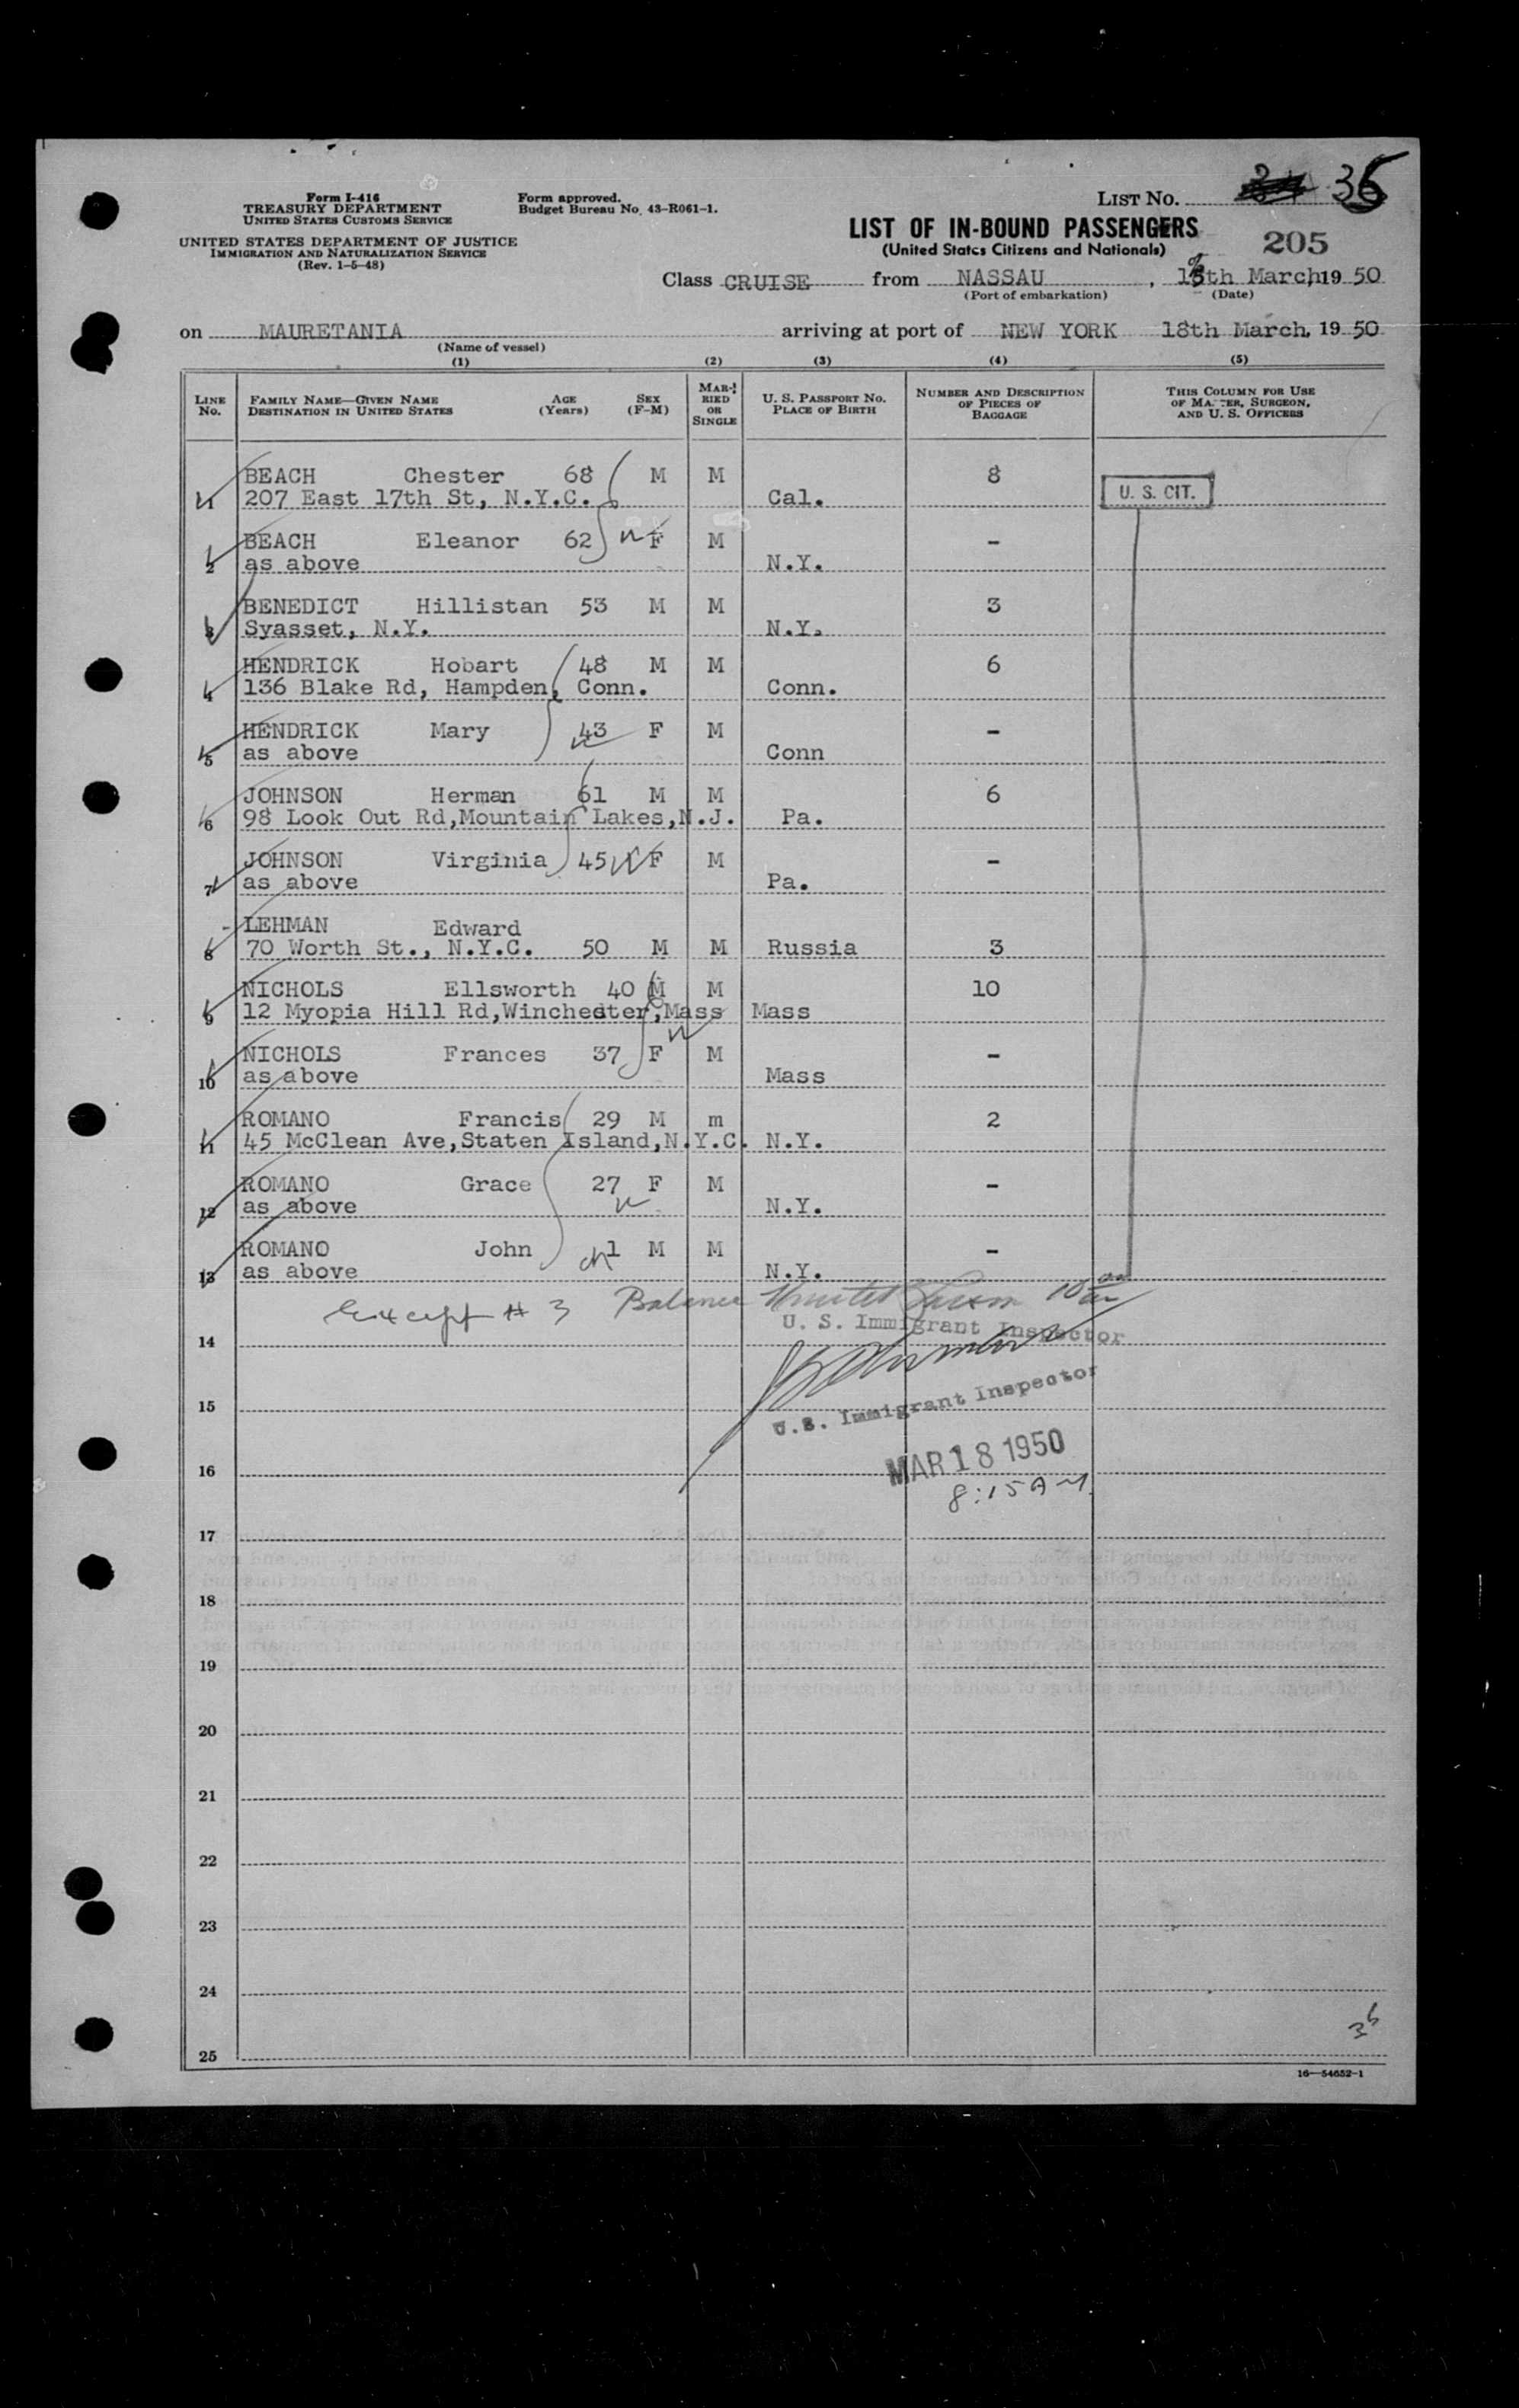 Form I-416
TREASURY DEPARTMENT
UNITED STATES CUSTOMS SERVICE
UNITED STATES DEPARTMENT OF JUSTICE
IMMIGRATION AND NATURALIZATION SERVICE
(Rev. 1-5-48)
Form approved.
Budget Bureau No. 43-R061-1.
LIST NO. 36
LIST OF IN-BOUND PASSENGERS
(United States Citizens and Nationals)
205
Class CRUISE from NASSAU, 15th March, 1950
(Port of embarkation) (Date)
on MAURETANIA arriving at port of NEW YORK 18th March, 1950
(Name of vessel)
(1) (2) (3) (4) (5)
LINE No. FAMILY NAME—GIVEN NAME DESTINATION IN UNITED STATES AGE (Years) SEX (F-M) MARRIED OR SINGLE U. S. PASSPORT NO. PLACE OF BIRTH NUMBER AND DESCRIPTION OF PIECES OF BAGGAGE THIS COLUMN FOR USE OF MASTER, SURGEON, AND U. S. OFFICERS
BEACH Chester 68 M M 8
1 207 East 17th St, N.Y.C. Cal. U. S. CIT.
BEACH Eleanor 62 F M -
2 as above N.Y.
BENEDICT Hillistan 53 M M 3
3 Syasset, N.Y. N.Y.
HENDRICK Hobart 48 M M 6
4 136 Blake Rd, Hampden, Conn. Conn.
HENDRICK Mary 43 F M -
5 as above Conn
JOHNSON Herman 61 M M 6
6 98 Look Out Rd,Mountain Lakes,N.J. Pa.
JOHNSON Virginia 45 F M -
7 as above Pa.
LEHMAN Edward
8 70 Worth St., N.Y.C. 50 M M Russia 3
NICHOLS Ellsworth 40 M M 10
9 12 Myopia Hill Rd,Winchester,Mass Mass
NICHOLS Frances 37 F M -
10 as above Mass
ROMANO Francis 29 M m 2
11 45 McClean Ave,Staten Island,N.Y.C. N.Y.
ROMANO Grace 27 F M -
12 as above N.Y.
ROMANO John 1 M M -
13 as above N.Y.
Except # 3 Balance
U. S. Immigrant Inspector
14
15
U.S. Immigrant Inspector
MAR 18 1950
16
8:15 AM
17
18
19
20
21
22
23
24
36
25
16-54652-1